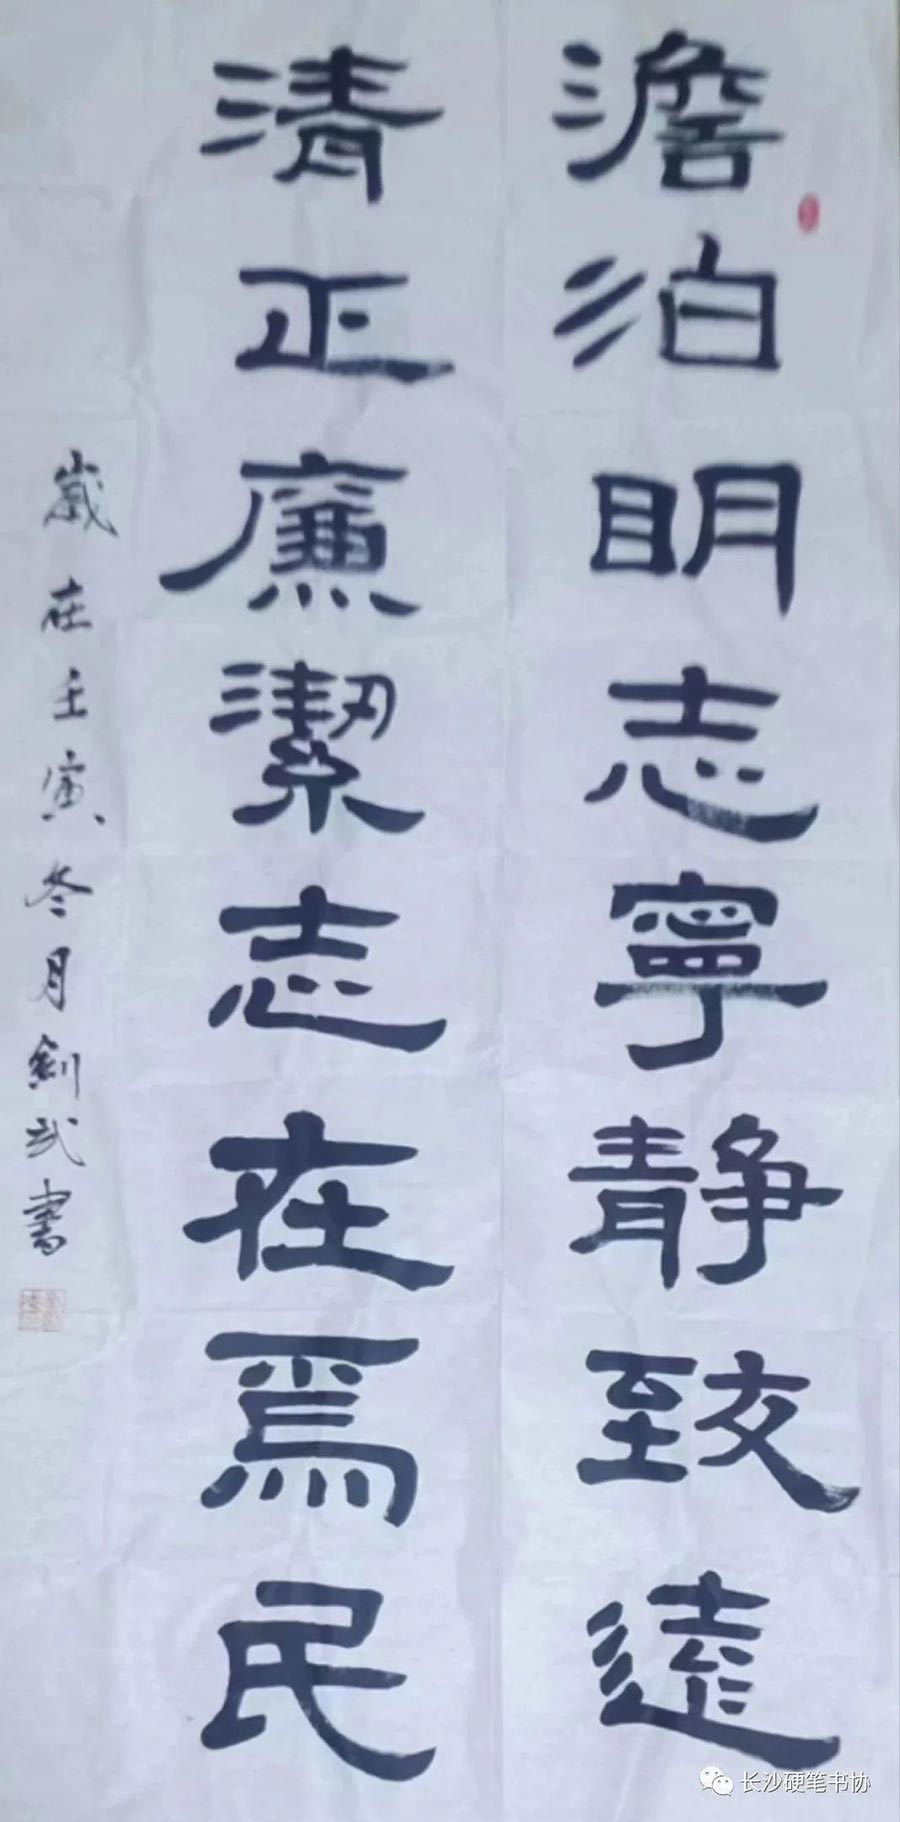 澹泊明志寧靜致遠
清正廉潔志在為民
歲在壬寅冬月劍武書
长沙硬笔书协